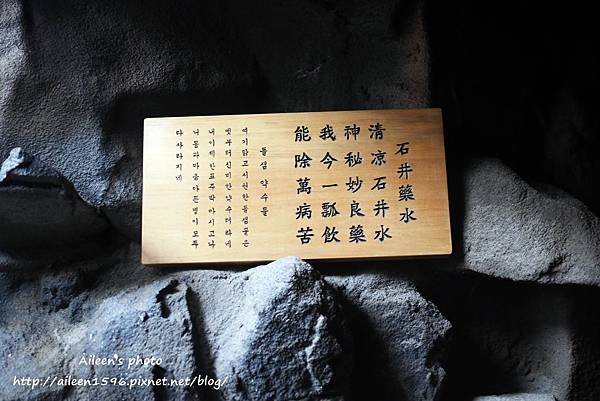 石井藥水
清凉石井水
神秘妙良藥
我今一瓢飮
能除萬病苦
돌샘 약수물
여기맑고시원한돌샘물은
옛부터신비한약수러라네
내이제한표주박마시고나
니몸과마음아든병이모두
다사라지네
Aileen's photo
http://aileen1596.pixnet.net/blog/